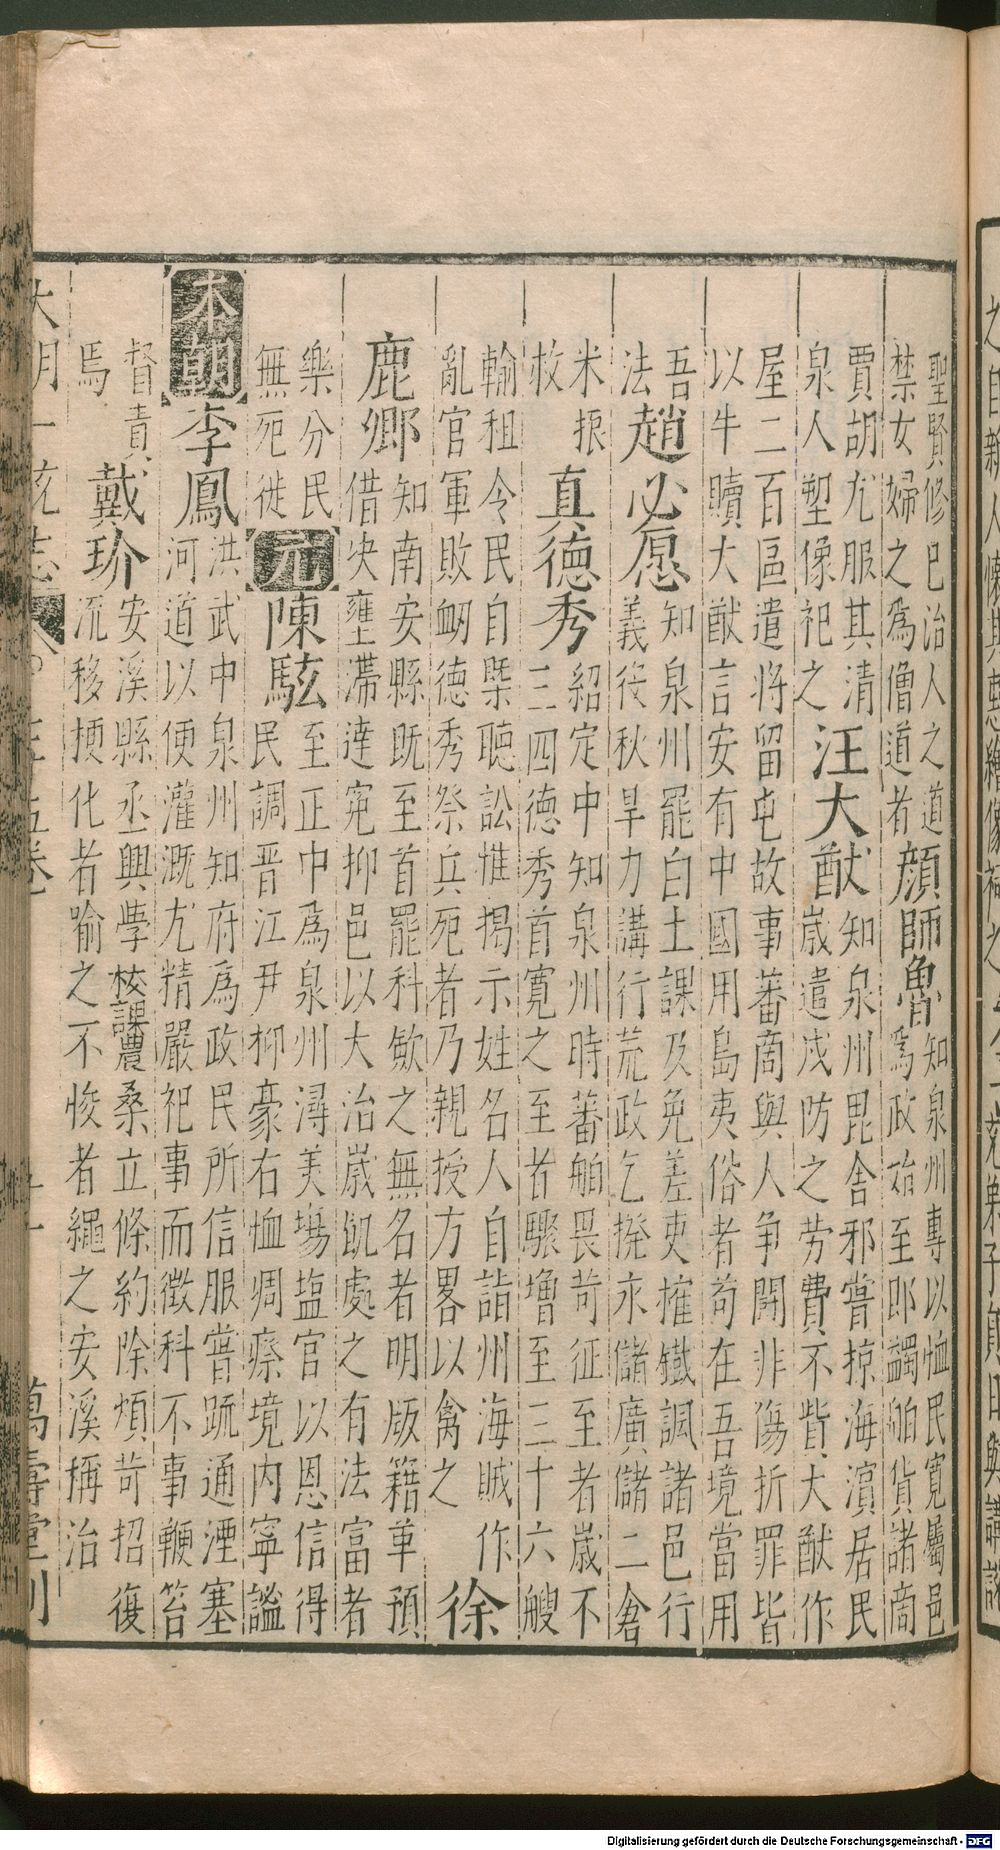 聖賢修已治人之道
禁女婦之為僧道者
顔師魯
知泉州專以恤民寬屬邑
為政始至即蠲舶貨諸商
賈胡尤服其清
泉人塑像祀之
汪大猷
知泉州毘舍邪嘗掠海濵居民
嵗遣戍防之勞費不貲大猷作
屋二百區遣將留屯故事蕃商與人爭鬪非傷折罪皆
以牛贖大猷言安有中國用島夷俗者苟在吾境當用
吾
法
趙必愿
知泉州罷白土課及免差吏榷鐵諷諸邑行
義役秋旱力講行荒政乞撥永儲廣儲二倉
米振
救
真德秀
紹定中知泉州時蕃舶畏苛征至者嵗不
三四德秀首寛之至者驟增至三十六艘
輸租令民自槩聽訟惟揭示姓名人自詣州海賊作
亂官軍敗衂德秀祭兵死者乃親授方畧以禽之
徐
鹿卿
知南安縣既至首罷科斂之無名者明版籍革預
借决壅滯達寃抑邑以大治嵗飢處之有法富者
樂分民
無死徙
元
陳駭
至正中為泉州潯美塲塩官以恩信得
民調晋江尹抑豪右恤凋瘵境内寧謐
本朝
李鳳
洪武中泉州知府為政民所信服嘗疏通湮塞
河道以便灌溉尤精嚴祀事而徴科不事鞭笞
督責
焉
戴玠
安溪縣丞興學校課農桑立條約除煩苛招復
流移梗化者喻之不悛者繩之安溪稱治
大明一統志
卷
萬壽堂刊
Digitalisierung gefördert durch die Deutsche Forschungsgemeinschaft - DFG